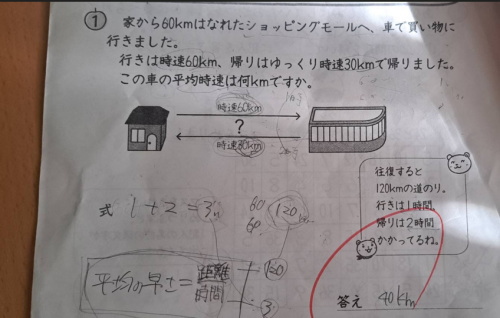 ① 家から60kmはなれたショッピングモールへ、車で買い物に
行きました。
行きは時速60km、帰りはゆっくり時速30kmで帰りました。
この車の平均時速は何kmですか。
時速60km
?
時速30km
往復すると
120kmの道のり。
行きは1時間、
帰りは2時間
かかってるね。
式 1+2=3
60
60
120
平均の早さ=距離
時間
120
3
答え 40km